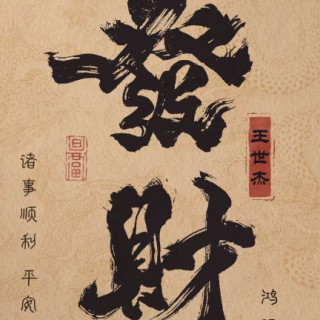 發財
王世杰
诸事顺利 平安
鸿